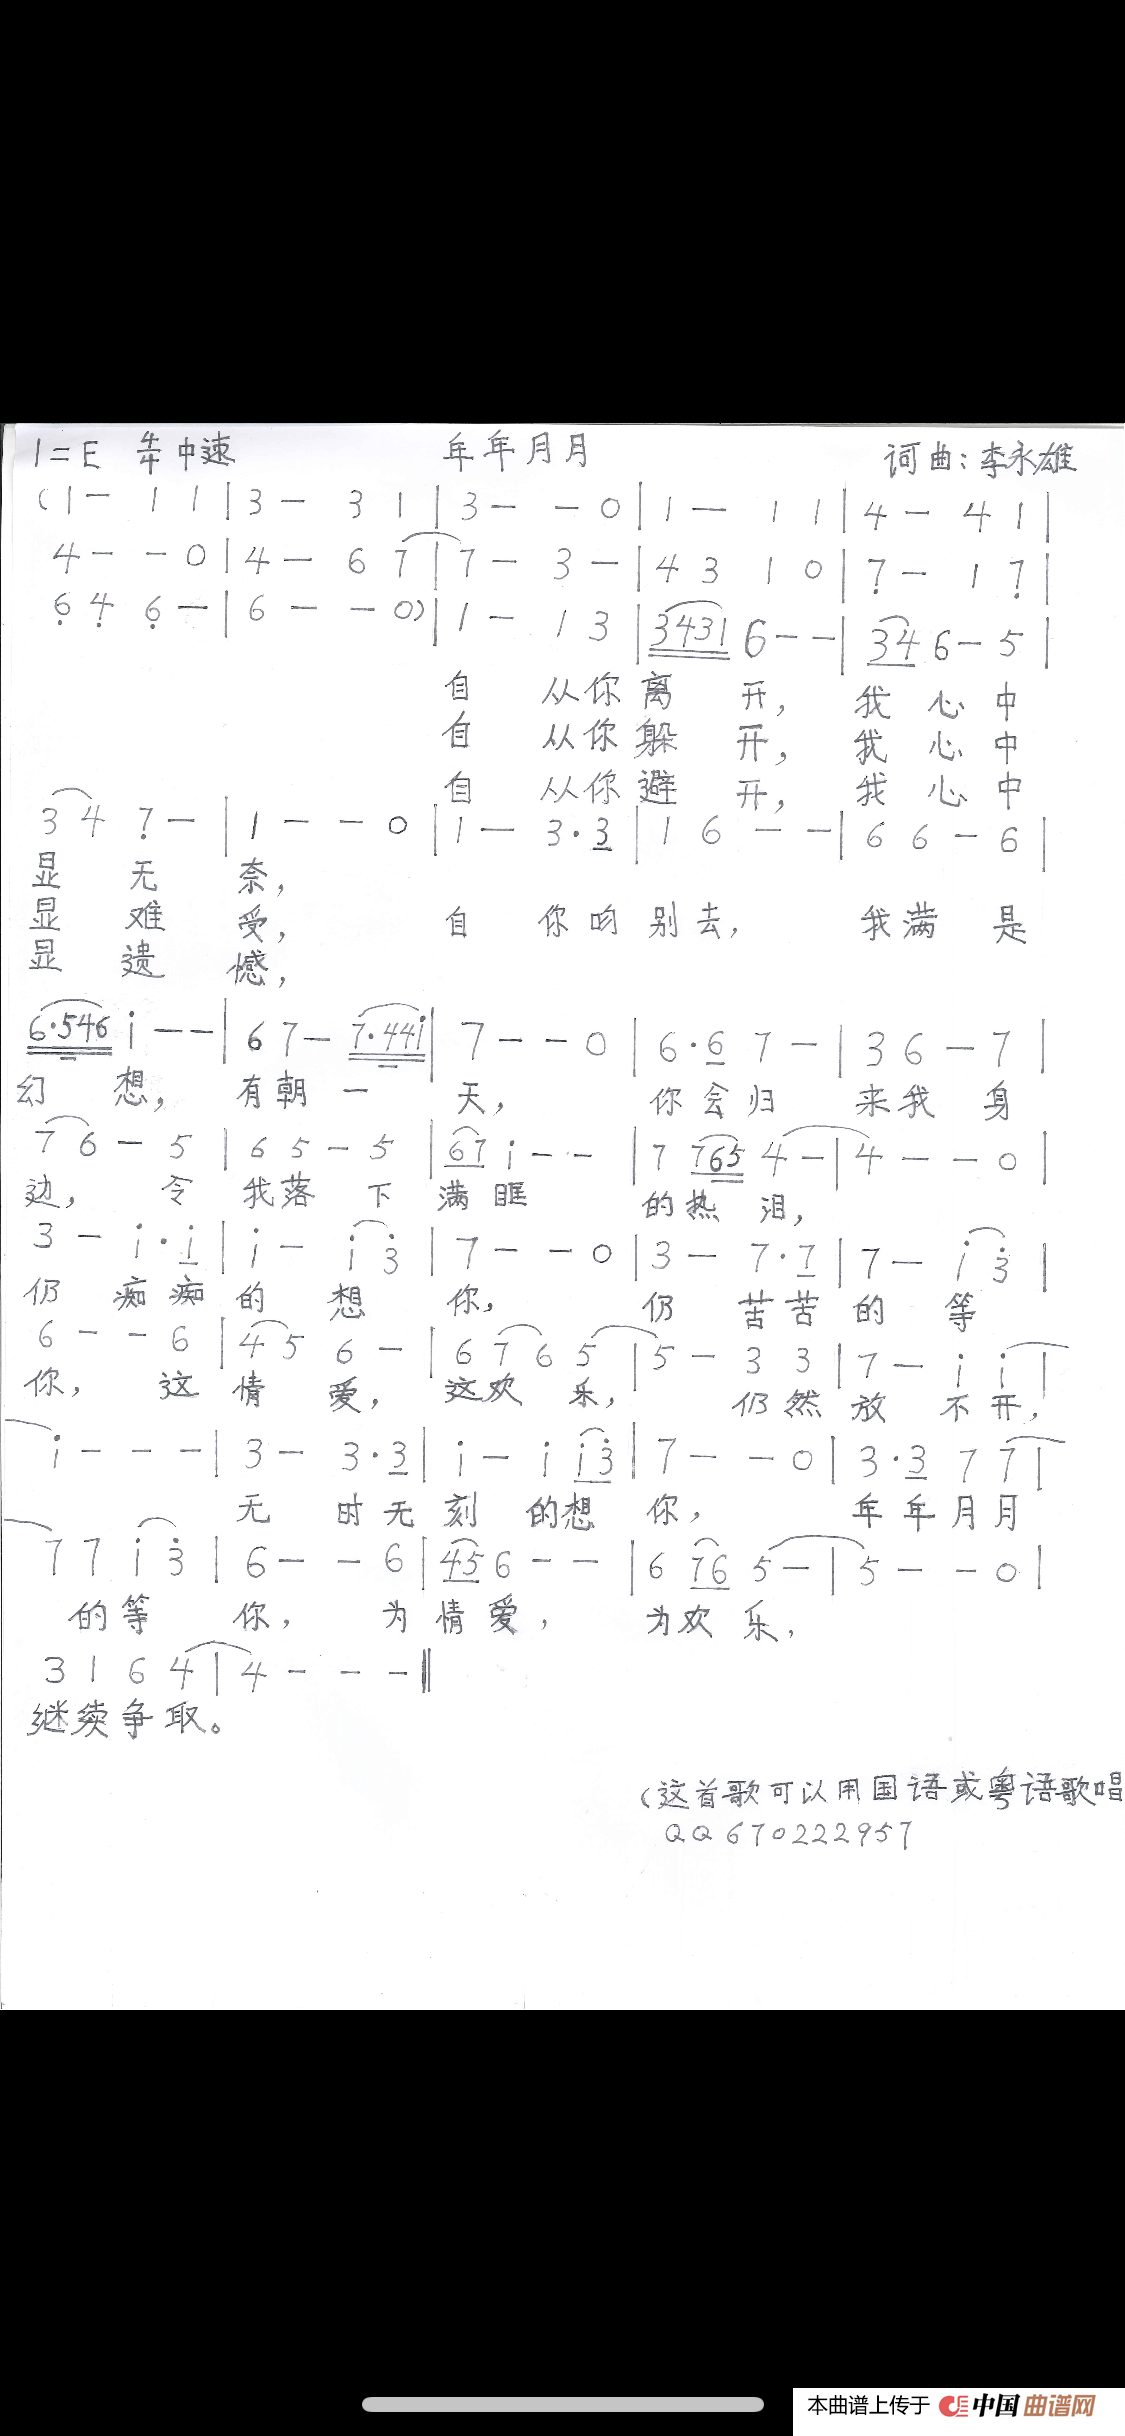 1=E 4/4 中速 年年月月 词曲:李永雄
(1 — 1 1 | 3 — 3 1 | 3 — — 0 | 1 — 1 1 | 4 — 4 1 |
4 — — 0 | 4 — 6 7 | 7 — 3 — | 4 3 1 0 | 7̣ — 1 7̣ |
6̣ 4̣ 6̣ — | 6 — — 0) | 1 — 1 3 | 3431 6 — — | 34 6 — 5 |
自 从你离 开, 我 心 中
自 从你躲 开, 我 心 中
自 从你避 开, 我 心 中
3 4 7̣ — | 1 — — 0 | 1 — 3·3 | 1 6 — — | 6 6 — 6 |
显 无 奈,
显 难 受, 自 你吻 别去, 我满 是
显 遗 憾,
6·546 i — — | 6 7 — 7·44i | 7 — — 0 | 6·6 7 — | 3 6 — 7 |
幻 想, 有朝 一 天, 你会归 来我 身
7 6 — 5 | 6 5 — 5 | 67 i — — | 7 765 4 — | 4 — — 0 |
边, 令 我落 下 满 眶 的热 泪,
3 — i·i | i — i 3̇ | 7 — — 0 | 3 — 7·7 | 7 — i 3̇ |
仍 痴痴 的 想 你, 仍 苦苦 的 等
6 — — 6 | 4 5 6 — | 6 7 6 5 | 5 — 3 3 | 7 — i i |
你, 这 情 爱, 这欢 乐, 仍然 放 不开,
i — — — | 3 — 3·3 | i — i i3̇ | 7 — — 0 | 3·3 7 7 |
无 时无 刻 的想 你, 年年月月
7 7 i 3̇ | 6 — — 6 | 45 6 — — | 6 76 5 — | 5 — — 0 |
的等 你, 为 情 爱, 为欢 乐,
3 1 6 4 | 4 — — — ‖
继续争取。
(这首歌可以用国语或粤语歌唱
QQ 670222957
本曲谱上传于 中国曲谱网